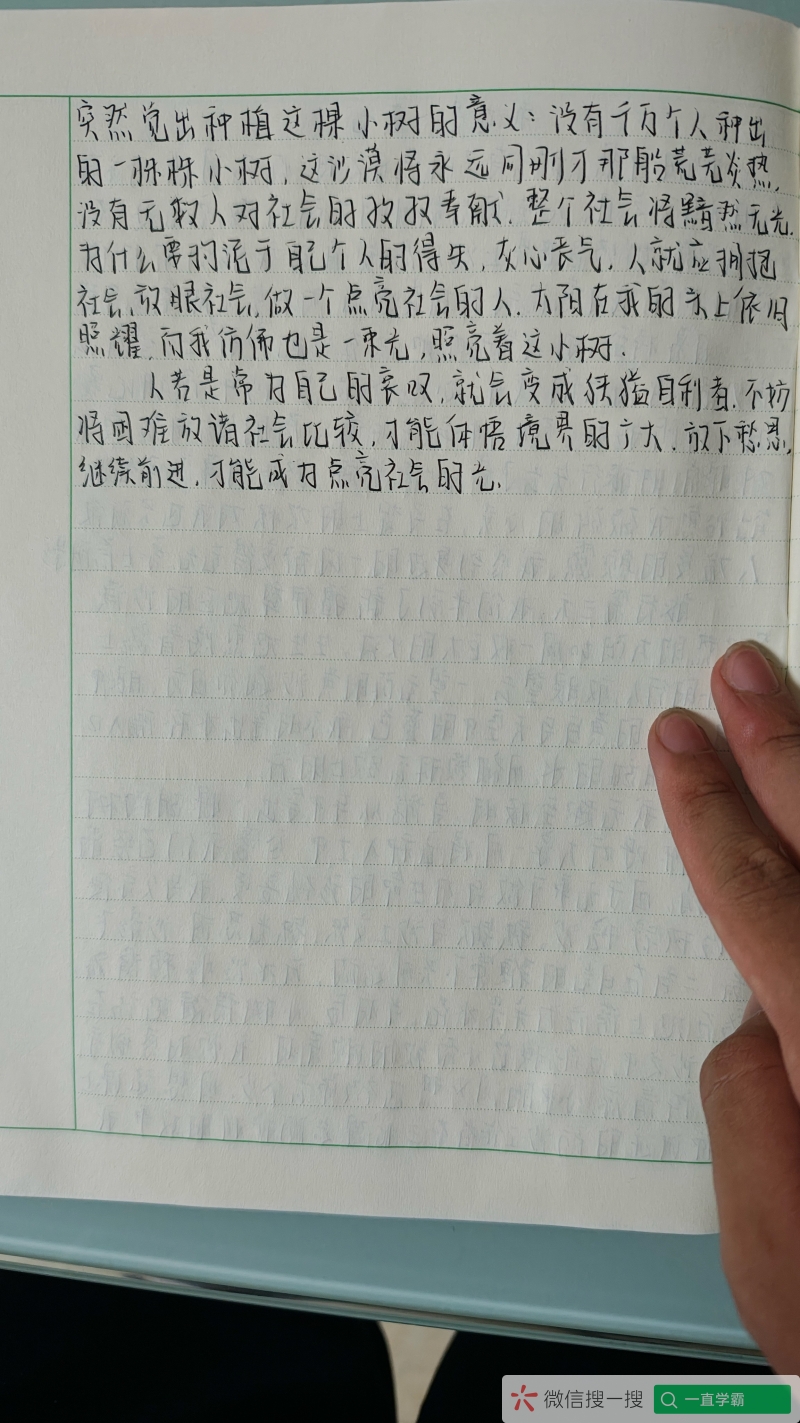 突然觉出种植这棵小树的意义：没有千万个人种出
的一株株小树，这沙漠将永远同刚才那般荒芜炎热，
没有无数人对社会的孜孜奉献，整个社会将黯然无光。
为什么要拘泥于自己个人的得失，灰心丧气，人就应拥抱
社会，放眼社会，做一个点亮社会的人。太阳在我的头上依旧
照耀，而我仿佛也是一束光，照亮着这小树。
人若是常为自己的哀叹，就会变成狭猛自利者。不妨
将困难放诸社会比较，才能体悟境界的广大。放下愁思，
继续前进，才能成为点亮社会的光。
微信搜一搜
一直学霸